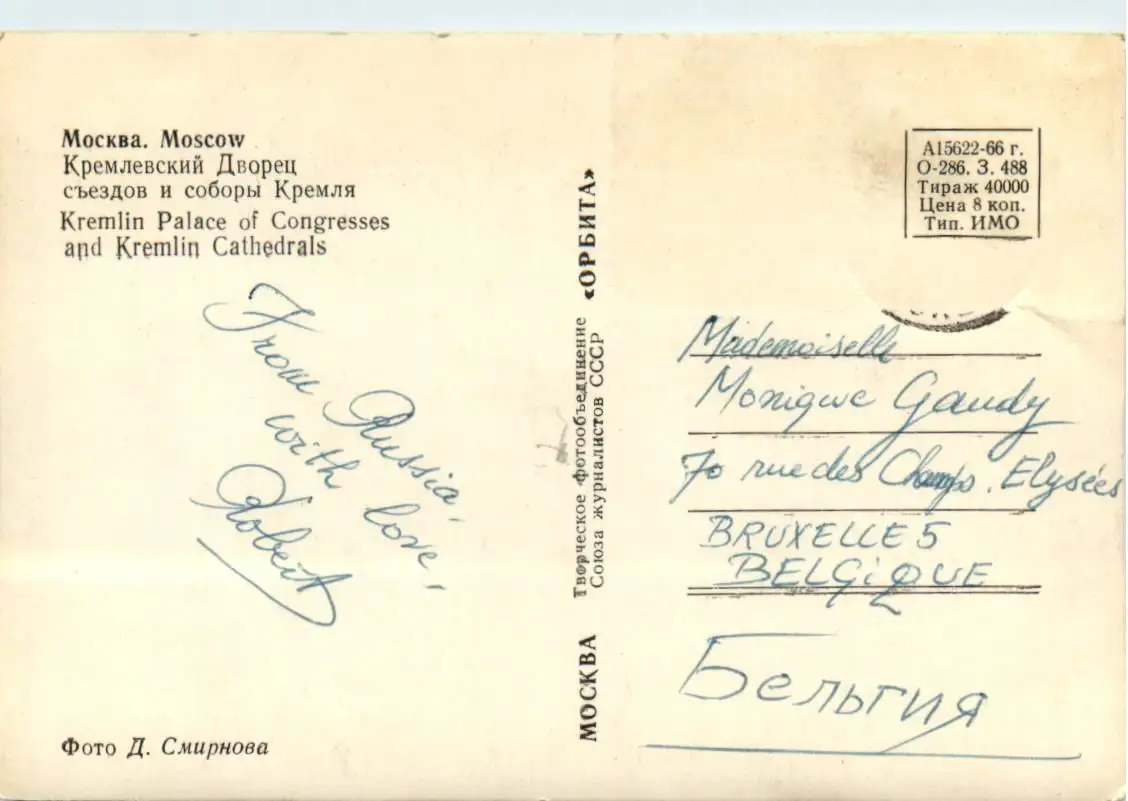 Москва. Moscow
Кремлевский Дворец
съездов и соборы Кремля
Kremlin Palace of Congresses
and Kremlin Cathedrals
From Russia,
with love,
Robert
Фото Д. Смирнова
МОСКВА
Творческое фотообъединение
Союза журналистов СССР
«ОРБИТА»
А15622-66 г.
О-286. З. 488
Тираж 40000
Цена 8 коп.
Тип. ИМО
Mademoiselle
Monique Gaudy
70 rue des Champs. Elysées
BRUXELLE 5
BELGiQUE
Бельгия